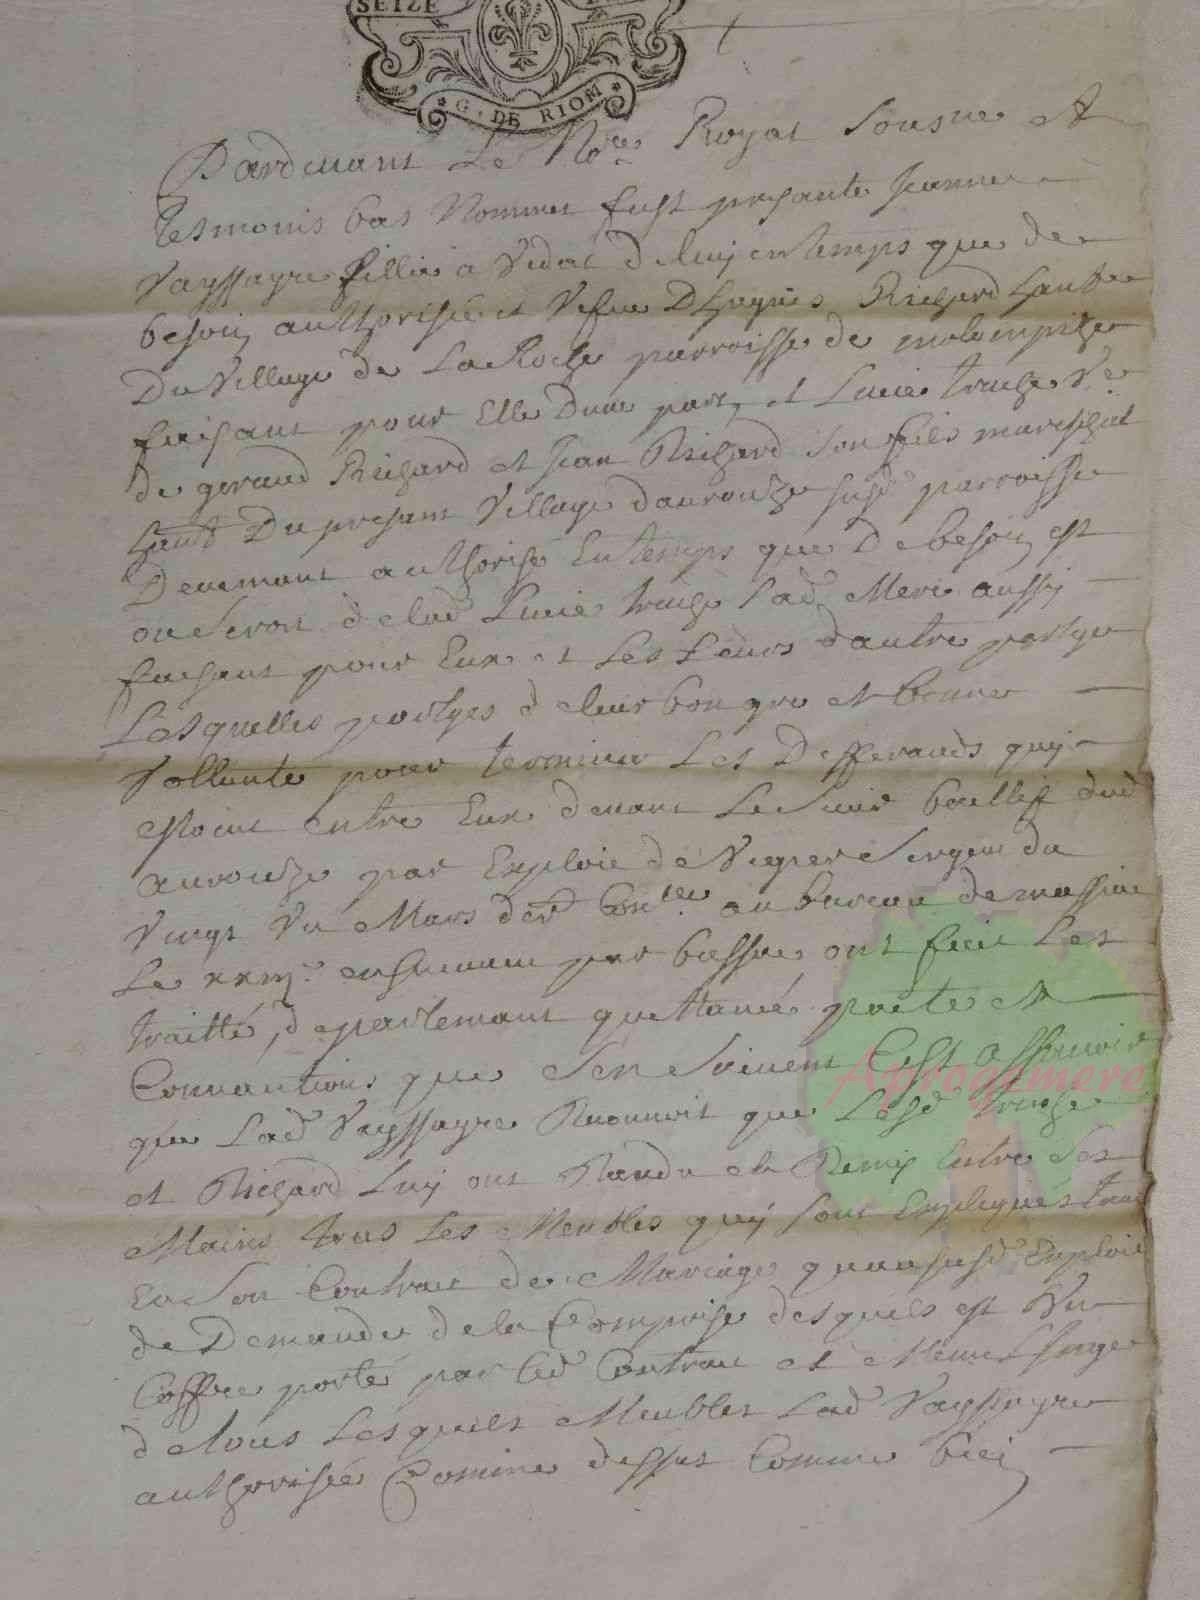 SEIZE
G. DE RIOM
Pardevant Le No.re Royal Sousne et
tesmoins bas Nommes fust presante Jeanne
Vayssayre fillie a Vidal d luy en temps que de
besoin authorisée et Vefve D hugues Richard hante
Du Village de La Roche parroisse de molompize
faisant pour Elle Dune part, et Lucie truche Ve
de geraud Richard et Jean Richard son fils mareschal
hants Du presant Village daurouze susd parroisse
Deuemant authorisé En temps que D besoin est
ou seroit d lad Lucie truche Lad Mere aussy
faisant pour Eux et Les Leurs dautre partye
Lesquelles partyes d leur bon gre et bonne
Vollunte pour terminer Les Defferands quy
estoint entre Eux devant Le Sieur baillif dud
aurouze par Exploit de Sergent du
Vingt Un Mars der.d Con.lle au bureau de massiac
Le xxiij.e ensuivant par basse ont fait Les
traitté, departemant quittance pacte et
Convantions que Sen Suivent Cest assavoir
que Lad Vayssayre Reconnoit que Lesd truche
et Richard Luy ont Randu et Remis Entre Ses
Mains tous Les Meubles quy sont Expliqués tant
En Son Contrat de Mariage quau susd Exploit
de Demande d la Comprise desquels est Un
Coffre porté par led Contrat et
d tous Lesquels Meubles Lad Vayssayre
authorisée Comme dessus Comme
Aprogemere